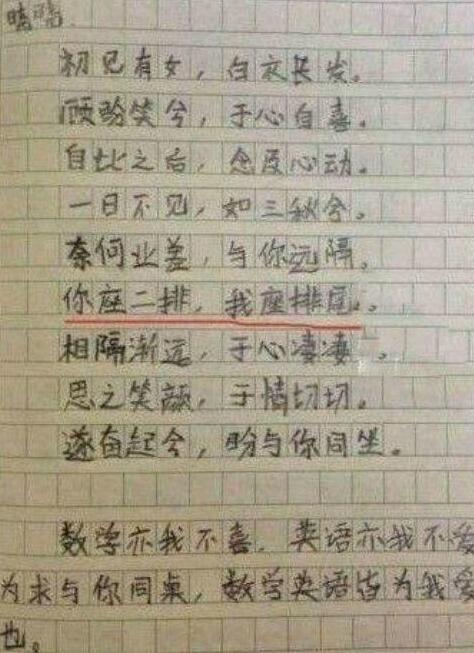 初见有女，白衣长发。
顾盼笑兮，于心自喜。
自此之后，念及心动。
一日不见，如三秋兮。
奈何业差，与你远隔。
你座二排，我座排尾。
相隔渐远，于心凄凄。
思之笑颜，于情切切。
遂奋起兮，盼与你同坐。
数学亦我不喜，英语亦我不爱
为求与你同桌，数学英语皆为我爱
也。